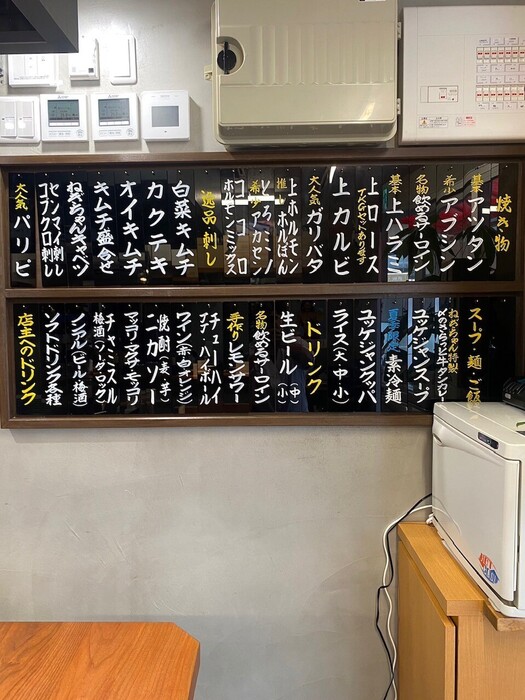 焼き物
基本 アツタン
希少 アブシン
名物 飲めるサーロイン
基本 上ハラミ
上ロース
上カルビ
大人気 ガリバタ
推し 上ホルモン
希少 アカセン
ココロ
ホルモンミックス
逸品 刺し
白菜キムチ
カクテキ
オイキムチ
キムチ盛合せ
ねぎちゃんキャベツ
センマイ刺し
コブクロ刺し
大人気 パリピ
スープ 麺 ご飯
ねぎちゃん特製
〆のさらっと牛タンカレー
ユッケジャンスープ
素冷麺
ユッケジャンクッパ
ライス(大・中・小)
ドリンク
生ビール(中)(小)
名物 飲めるサーロイン
手作り レモンサワー
チューハイ
ハイボール
ワイン(赤・白・オレンジ)
焼酎(麦・芋)
ニカソー
マッコリ
チャミスル
梅酒(ソーダ・ロック)
ノンアル(ビール・梅酒)
ソフトドリンク各種
店主へのドリンク